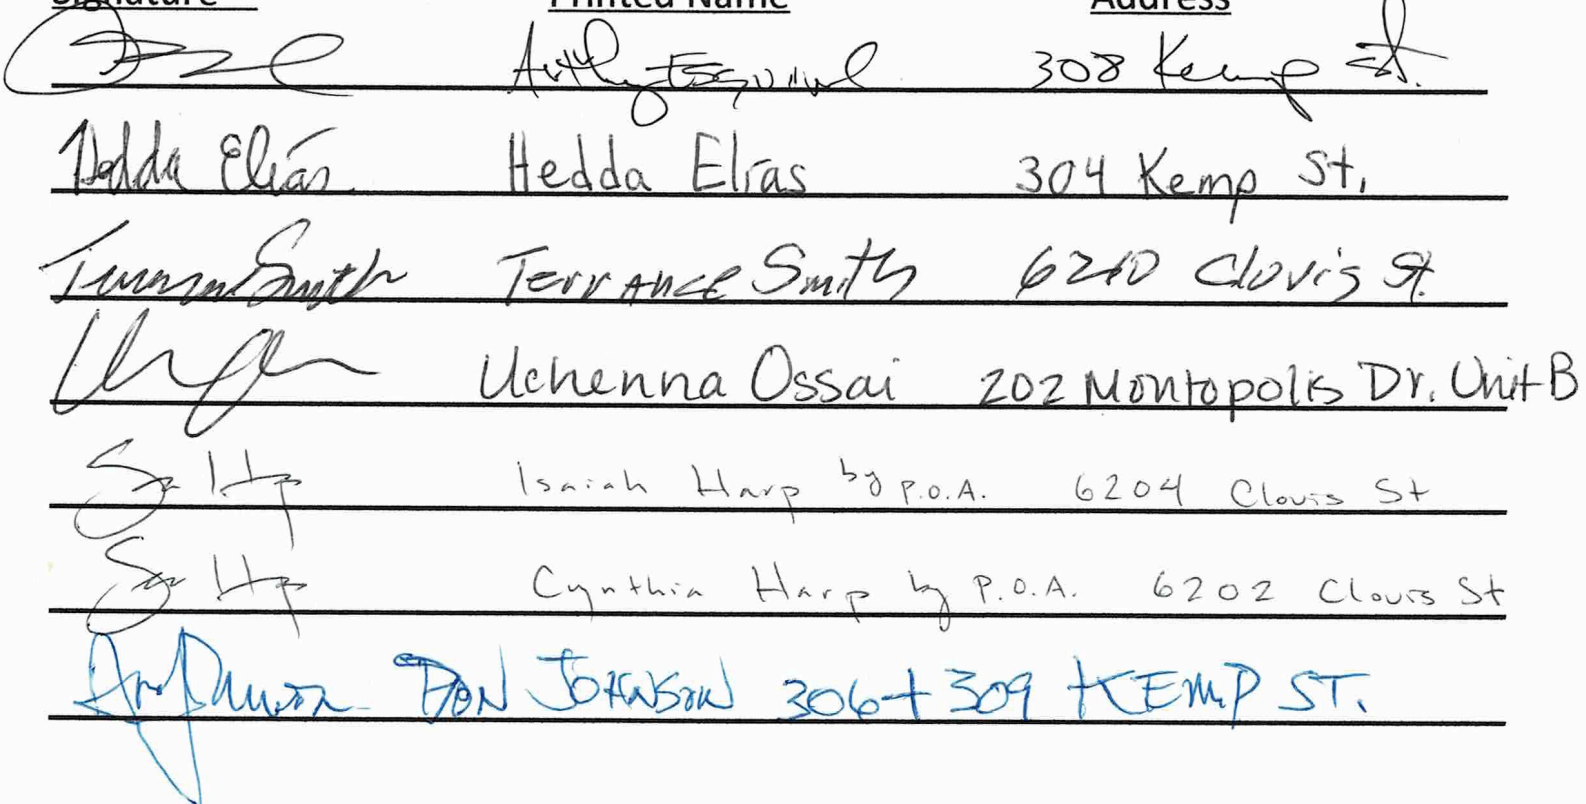 Signature Printed Name Address
308 Kemp St.
Hedda Elías Hedda Elías 304 Kemp St.
Smith Terrance Smith 6210 Clovis St.
Uchenna Ossai 202 Montopolis Dr. Unit B
Isaiah Harp by P.O.A. 6204 Clovis St
Cynthia Harp by P.O.A. 6202 Clovis St
DON JOHNSON 306 + 309 KEMP ST.